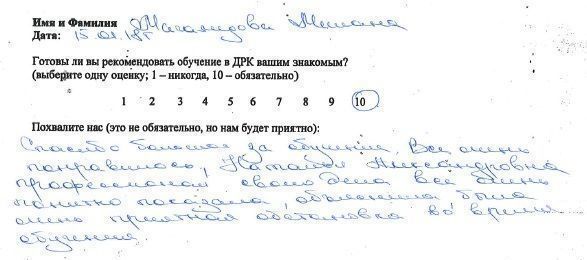 Имя и Фамилия Магамедова Милана
Дата: 15.01.18г
Готовы ли вы рекомендовать обучение в ДРК вашим знакомым?
(выберите одну оценку; 1 – никогда, 10 – обязательно)
1 2 3 4 5 6 7 8 9 10
Похвалите нас (это не обязательно, но нам будет приятно):
Спасибо большое за обучения, Все очень
понравилось, Наталья Александровна
профессионал своего дела все очень
понятно показала, объяснила была
очень приятная обстановка во время
обучения